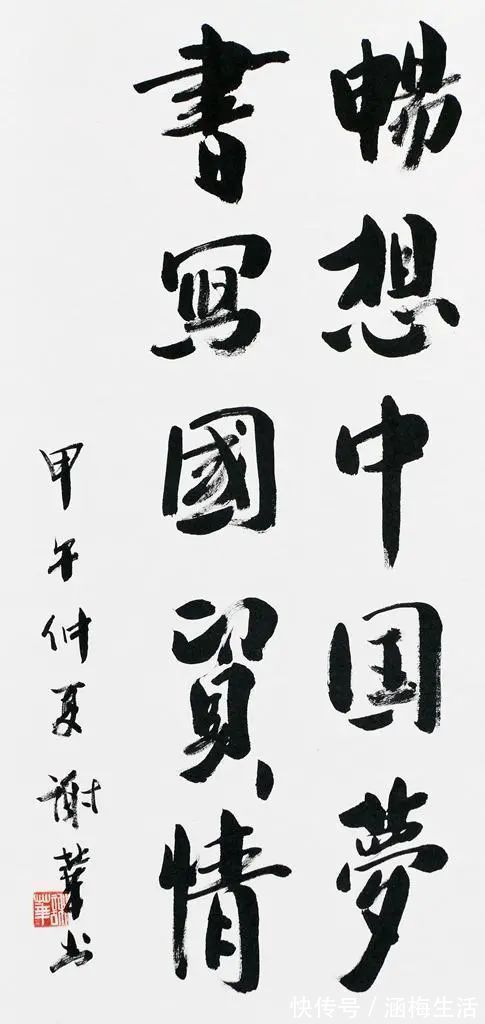 暢想中国夢
書寫國貿情
甲午仲夏謝華书
謝華
快传号／涵梅生活